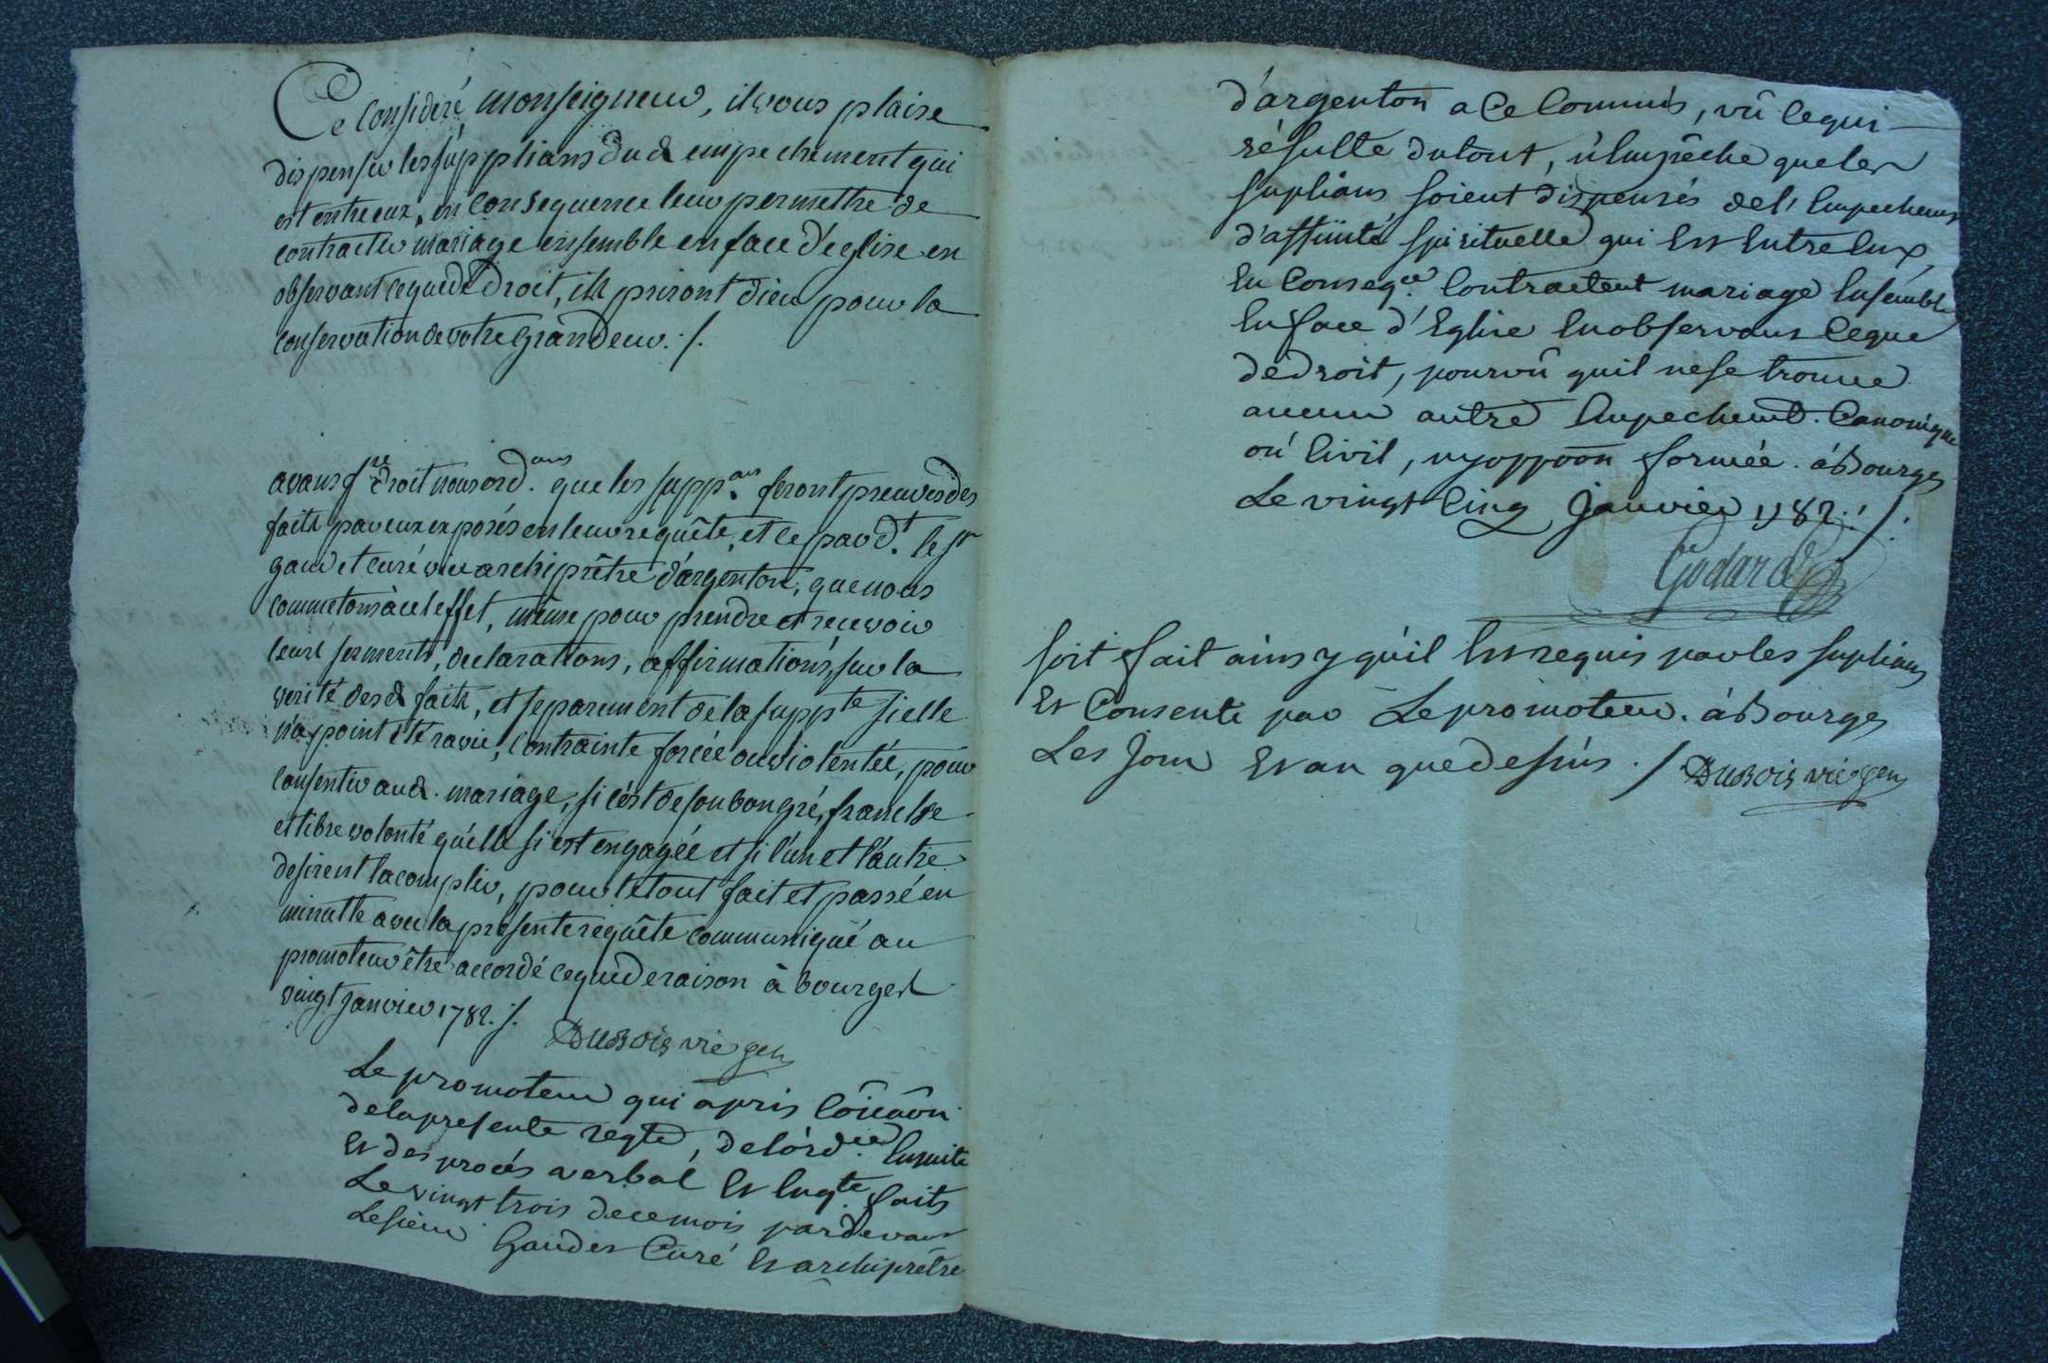 Ce Consideré monseigneur, il vous plaise
dispenser les supplians dud empechement qui
est entre eux, en Consequence leur permettre de
contracter mariage ensemble en face d'église en
observant ce que de Droit, ils priront dieu pour la
conservation de votre Grandeur ./.
avans fre droit nous ord. ans que les supp. ans feront preuves des
faits par eux exposés en leur requête, et ce pard.t le sr
gaudet curé archiprêtre d'argenton, que nous
commetons à cet effet, même pour prendre et recevoir
leurs serments, declarations, affirmations, sur la
verité desd faits, et separement de la suppte si elle
n'a point été ravie, contrainte forcée ou violentée, pour
consentir aud. mariage, si c'est de son bon gré, franche
et libre volonté qu'elle si est engagée et si l'un et l'autre
desirent l'acomplir, pour le tout fait et passé en
minutte avec la presente requête communiqué au
promoteur être accordé ce que de raison à bourges
vingt janvier 1782 ./.
DuBois vic gen
Le promoteur qui a pris Côicâôn
de la presente reqte, de l'ord.ce Ensuite
Et des procés verbal Et Enqte. faits
Le vingt trois de ce mois pardevant
Le sieur Gaudet Curé Et archiprêtre
d'argenton a Ce Commis, vû Ce qui
résulte du tout, n'Empêche que les
suplians soient dispensés de l'Empechemt
d'affinité spirituelle qui Est Entre Eux,
En Conseq.ce Contractent mariage Ensemble
En face d'Eglise En observans Ce que
de Droit, pourvû quil ne se trouve
aucun autre Empechemt. Canonique
ou Civil, ny oppoôn formée. à Bourges
Le vingt Cinq Janvier 1782 ./.
Godard
soit fait ainsy qu'il Est requis par les suplians
Et Consenti par Le promoteur. à Bourges
Les Jour Et an que dessus ./. DuBois vic gen